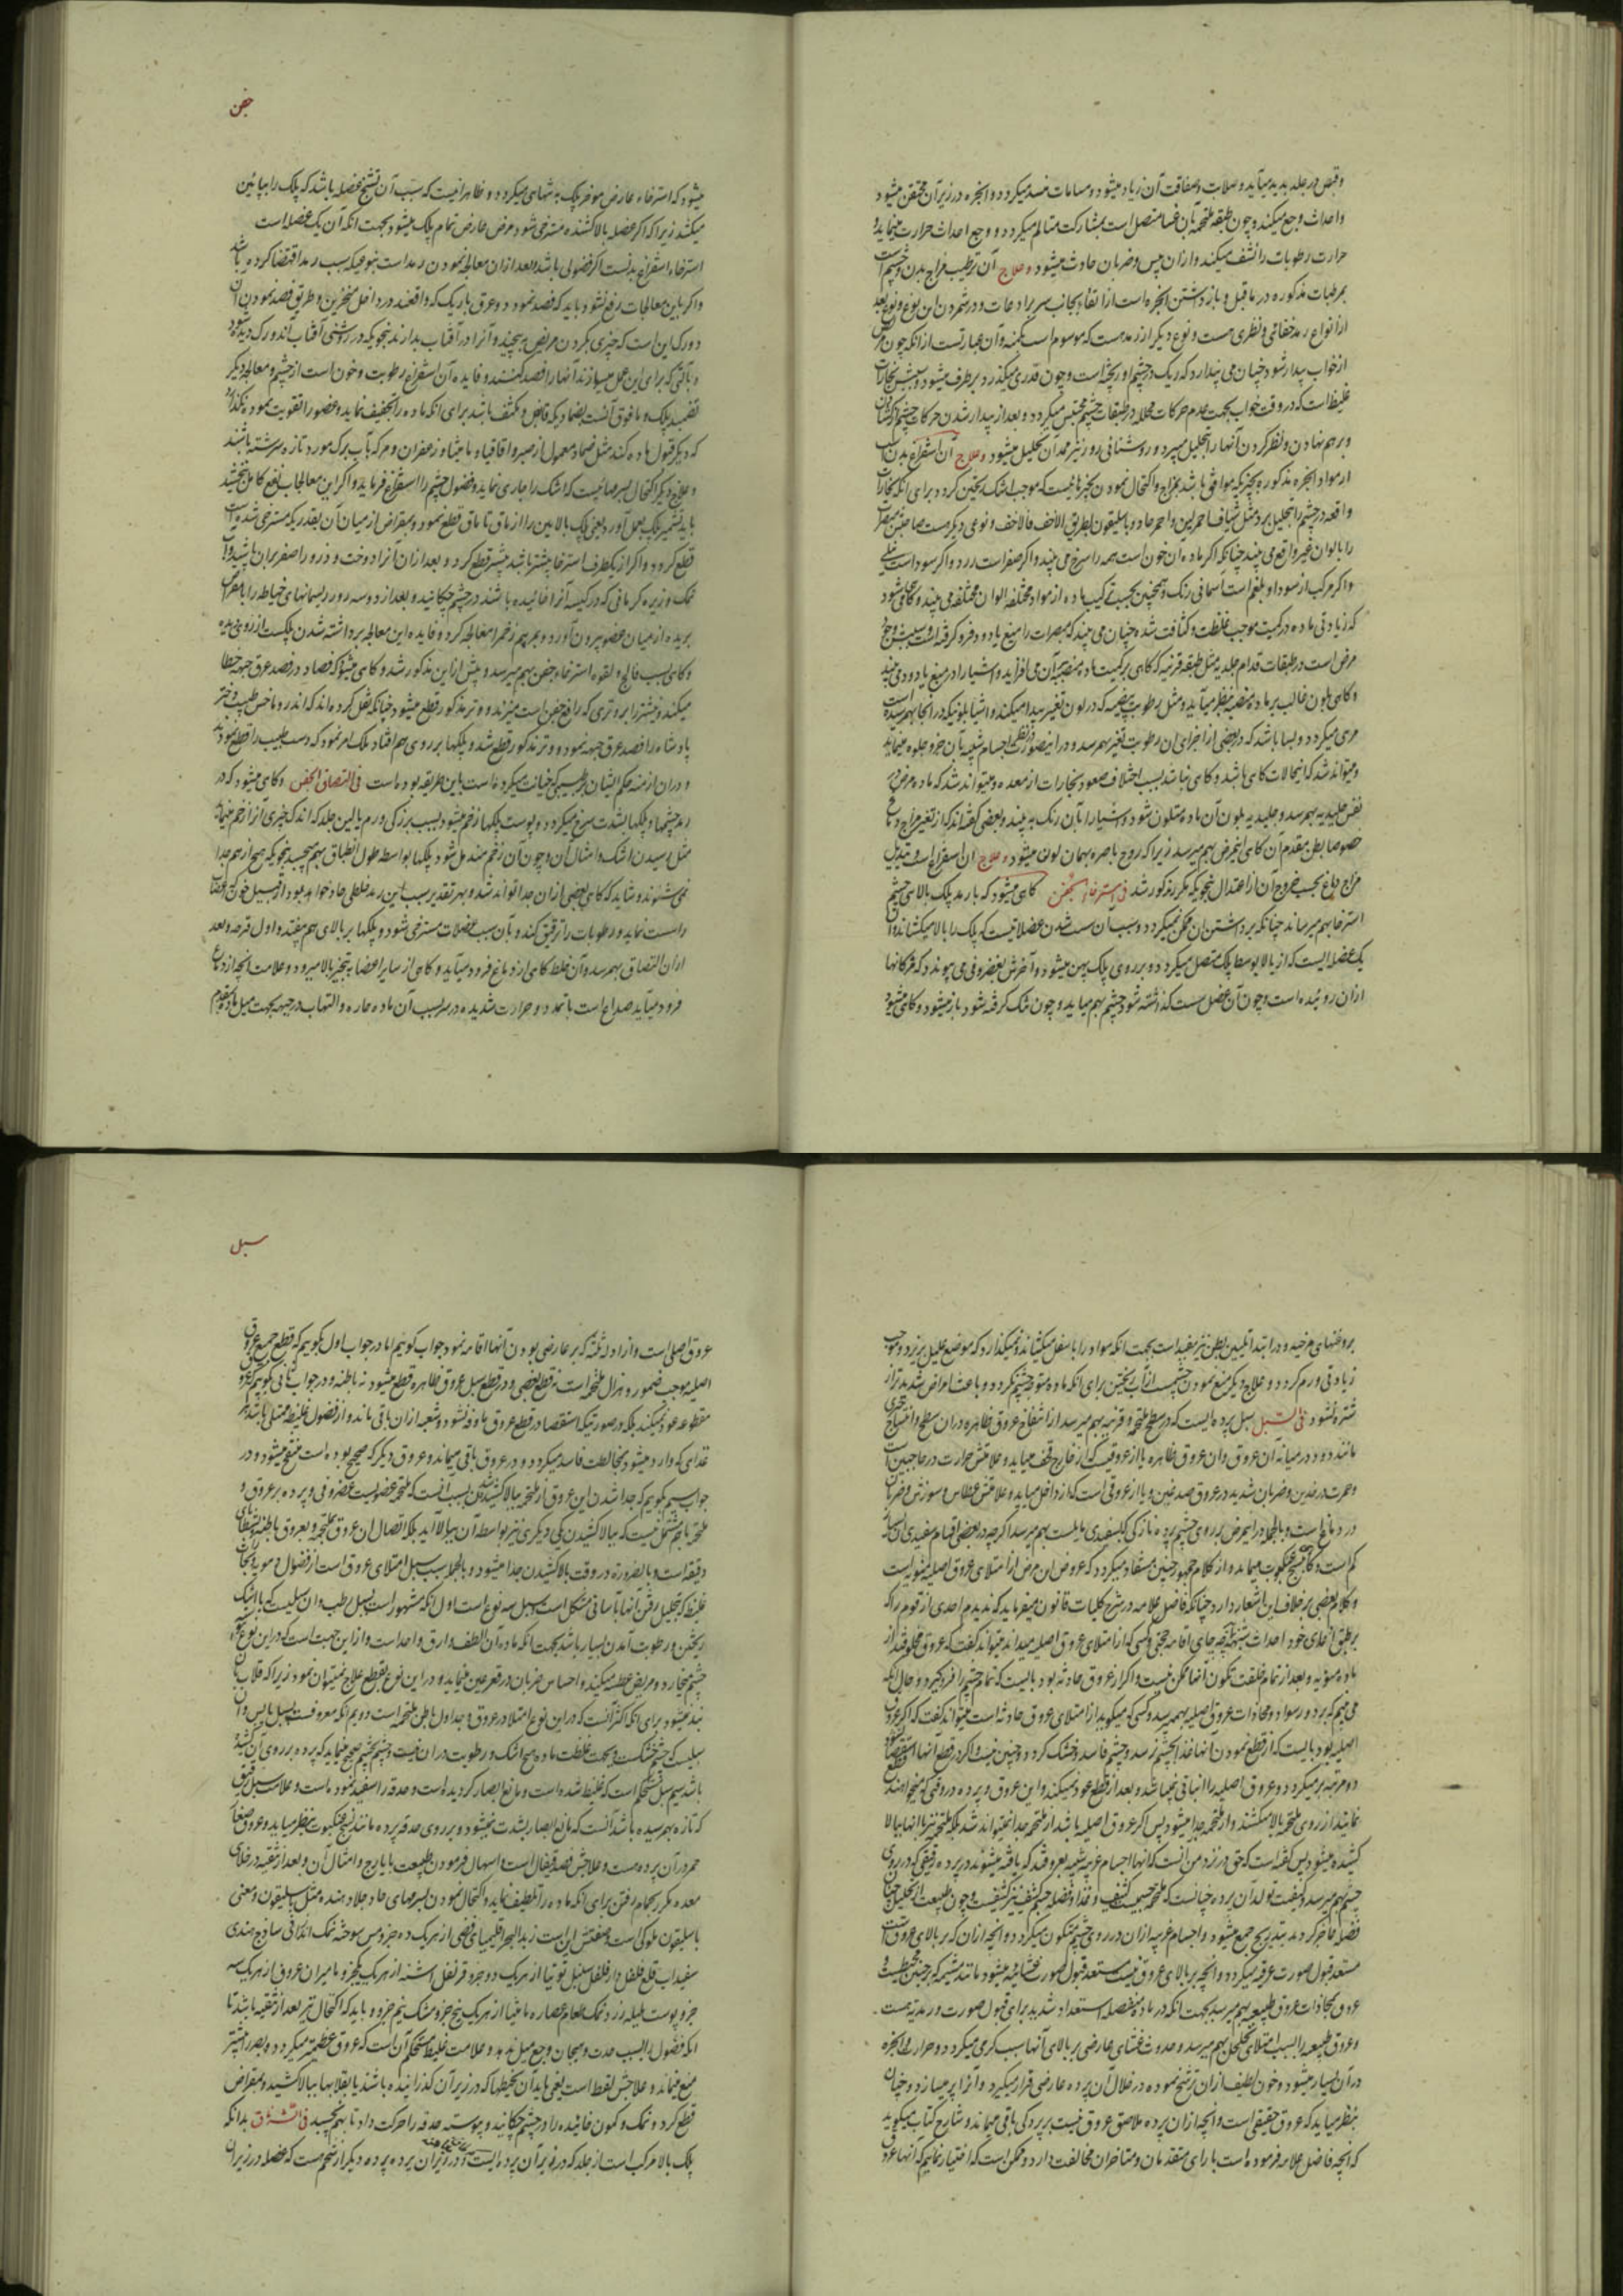 وقبض در جلد پدید میآید و صلابت و صفاقت آن زیاد میشود و مسامات منسد میکردد و ابخره در زیر آن محتقن میشود
و احداث وجع میکند و چون طبقه ملتحمه بآن غشا متصل است بمشارکت متالم میکردد و وجع احداث حرارت مینماید و
حرارت رطوبات را نشف میکند و ازان یبس و ضربان حادث میشود و علاج آن ترطیب مزاج بدن و چشم است
بمرطبات مذکوره در ماقبل و باز داشتن ابخره است از ارتقاء بجانب سر برادعات و در شمردن این نوع و نوع بعد
از انواع رمد خفائی و نظری هست و نوع دیکر از رمد هست که موسوم است بکمنه و آن عبارتست از انکه چون مریض
از خواب بیدار شود چنان می پندارد که ریک در چشم او ریخته است و چون قدری میکذرد برطرف میشود و سببش بخارات
غلیظ است که در وقت خواب بجهت عدم حرکات محلله در طبقات چشم محتبس میکردد و بعد از بیدار شدن حرکات چشم از کشادن
و برهم نهادن و نظر کردن آنها را بتحلیل میبرد و روشنائی روز نیز ممد آن تحلیل میشود و علاج آن استفراغ بدن است
از مواد و ابخره مذکوره بچیزیکه موافق باشد بمزاج و اکتحال نمودن بچیزهائیست که موجب اشک ریختن کردد برای انکه بخارات
واقعه در چشم را بتحلیل برد مثل شیاف احمر لین و احمر حاد و باسلیقون بطریق الاخف فالاخف و نوعی دیکر هست صاحبش مبصرات
را بالوان غیر واقع می بیند چنانکه اکر ماده آن خون است همه را سرخ می بیند و اکر صفراست زرد و اکر سوداست نیلی
و اکر مرکب از سودا و بلغم است آسمانی رنک و همچنین بحسب ترکیب ماده از مواد مختلفه الوان مختلفه می بیند و کاهی میشود
که زیادتی ماده در کمیت موجب غلظت و کثافت شده چنان می بیند که مبصرات را میغ یا دود فرو کرفته است و سببش وجع
مرض است در طبقات قدام جلدیه مثل طبقه قرنیه که کاهی بر کمیت ماده منصبه بآن می افزاید و اشیا را در میغ یا دود می بیند
و کاهی بلون غالب بر ماده منصبه بنظر میآید و مثل رطوبت بیضیه که در لون تغییر پیدا میکند و اشیا بلونیکه در انجا بهم رسیده است
مرئی میکردد و بسا باشد که در بعضی از اجزای ان رطوبت تغیر بهم رسد و در اینصورت اجسام شبیه بآن جزو جلوه مینماید
و میتواند شد که این حالات کاهی باشد و کاهی نباشد بسبب اختلاف صعود بخارات از معده و میتواند شد که ماده مرض در
نفس جلیدیه بهم رسد و جلیدیه بلون آن ماده متلون شود و اشیا را بآن رنک به بیند و بعضی کفته اند که از تغیر مزاج دماغ
خصوصا بطن مقدم آن کاهی این مرض بهم میرسد زیرا که روح باصره بهمان لون میشود و علاج آن استفراغ است و تبدیل
مزاج دماغ بحسب خروج آن از اعتدال بنحویکه مکرر مذکور شد فی استرخاء الجفن کاهی میشود که با رمد پلک بالای چشم
استرخا بهم میرساند چنانکه برداشتن آن ممکن نمیکردد و سبب آن سست شدن عضلاتیست که پلک را بالا میکشاند و آن
یک عضله ایست که از بالا بوسط پلک متصل میکردد و بر روی پلک پهن میشود و آخرش بغضروفی می پیوندد که مژکانها
ازان روئیده است و چون آن عضل سست کذاشته شود چشم بهم میاید و چون تنک کرفته شود باز میشود و کاهی میشود
جفن
میشود که استرخاء عارض موخر پلک به تنهائی میکردد و ظاهر انیست که سبب آن تشنج عضله باشد که پلک را بپائین
میکشد زیرا که اکر عضله بالا کشنده مسترخی شود مرض عارض تمام پلک میشود بجهت انکه آن یک عضله است
استرخاء استفراغ بدنست اکر فضولی باشد و بعد ازان معالجه نمودن رمد است بنوعیکه سبب رمد اقتضا کرده باشد
و اکر باین معالجات رفع نشود باید که فصد نمود دو عرق باریک که واقعند در داخل منخرین و طریق فصد نمودن آن
دو رک این است که چیزی بکردن مریض به پیچند و آنرا در آفتاب بدارند بنحویکه در روشنی آفتاب آندو رک دیده شود
و بآلتی که برای این عمل میسازند آنها را فصد کنند و فایده آن استفراغ رطوبت و خون است از چشم و معالجه دیکر
تضمید پلک و مافوق آنست بضمادیکه قابض و مجفف باشد برای انکه ماده را تجفیف نماید و عضو را تقویت نموده نکذارد
که دیکر قبول ماده کند مثل ضماد معمول از صبر و اقاقیا و مامیثا و زعفران و مر که بآب برک مورد تازه سرشته باشند
و علاج دیکر اکتحال بسرمه هائیست که اشک را جاری نماید و فضول چشم را استفراغ فرماید و اکر این معالجات نفع کامل نبخشد
باید تشمیر پلک بعمل آورد یعنی پلک بالائین را از ماق تا ماق قطع نمود و بمقراض از میان آن بقدریکه مسترخی شده است
قطع کردد و اکر از یکطرف استرخا بیشتر باشد بیشتر قطع کردد و بعد ازان آنرا دوخت و ذرور اصفر بران پاشید و آب
نمک و زیره کرمانی که در کیسه آنرا خائیده باشند در چشم چکانید و بعد از دو سه روز ریسمانهای خیاطه را با مقراض
بریده از میان عضو بیرون آورد و بمرهم زخمرا معالجه کرد و فایده این معالجه برداشته شدن پلکست از روی دیده
و کاهی بسبب فالج و لقوه استرخاء جفن بهم میرسد و پیش ازین مذکور شد و کاهی میشود که فصاد در فصد عرق جبهه خطا
میکند و بیشتر ابر و وتری که رافع جفن است میزند و وتر مذکور قطع میشود چنانکه نقل کرده اند که اندروماخس طبیب دختر
پادشاه را فصد عرق جبهه نمود و وتر مذکور قطع شد و پلکها بر روی هم افتاد ملک امر نمود که دست طبیب را قطع نمودند
و دران ازمنه حکم ایشان بر طبیبی که خیانت میکرده است باین طریقه بوده است فی التصاق الجفن و کاهی میشود که در
رمد چشمها و پلکها بشدت سرخ میکردد و پوست پلکها زخم میشود بسبب بزرکی ورم یا لین جلد که اندک چیزی آنرا زخم مینماید
مثل رسیدن اشک و امثال آن و چون آن زخم مندمل شود پلکها بواسطه طول انطباق بهم میچسبد بنحویکه هیچ از هم جدا
نمی شوند و شاید که کاهی بعضی ازان جدا تواند شد و بهر تقدیر سبب این رمد خلطی حاد خواهد بود از قبیل خون که اعضا
را سست نماید و رطوبات را ترقیق کند و بآن سبب عضلات مسترخی شود و پلکها بر بالای هم بیفتد و اول قرحه و بعد
ازان التصاق بهم رسد و آن خلط کاهی از دماغ فرود میآید و کاهی از سایر اعضا به تبخیر بالا میرود و علامت انچه از دماغ
فرود میآید صداع است با تمدد و حرارت شدیده در سر بسبب آن ماده حاره و التهاب در جبهه بجهت میل ماده بمقدم
بروغنهای مرخیه و در ابتدا تلیین بطن نیز مفید است بجهت انکه مواد را باسفل میکشاند و نمیکذارد که بموضع علیل بریزد و موجب
زیادتی ورم کردد و علاج دیکر منع نمودن چشمست از آب ریختن برای انکه ماده متوجه چشم نکردد و باعث امراض شدیدتر از
شتره نشود فی السبل سبل پرده ایست که در سطح ملتحمه و قرنیه بهم میرسد از انتفاخ عروق ظاهره دران سطح و انتساج چیزی
مانند دود در میانه آن عروق و ان عروق ظاهره یا از عروقیست که از خارج قحف میاید و علامتش حرارت در حاجبین است
و حمرت در خدین و ضربان شدید در عروق صدغین و یا از عروقی است که از داخل میاید و علامتش عطاس و سوزش و ضربان
در دماغ است و بالجمله در این مرض بر روی چشم پرده نازکی که بسفیدی مایلست بهم میرسد اکر چه در بعضی اقسام سفیدی ان بسیار
کم است و کاهی بنسج عنکبوت میماند و از کلام جمهور چنین مستفاد میکردد که عروض ان مرض از امتلای عروق اصلیه عینیه است
و کلام بعضی بر خلاف این اشعار دارد چنانکه فاضل علامه در شرح کلیات قانون میفرماید که ندیدم احدی از قوم را که
بر طبق ادعای خود احداث شبهه چه جای اقامه حجتی و کسی که از امتلای عروق اصلیه میداند میتواند کفت که عروق مخلوقند از
ماده منویه و بعد از تمام خلقت تکون انها ممکن نیست و اکر از عروق حادثه بود بایست که تمام چشم را فرو کیرد و حال انکه
می بینم که بر دور سواد و محاذات عروق اصلیه بهم میرسد و کسی که میکوید از امتلای عروق حادثه است میتواند کفت که اکر عروق
اصلیه بود بایست که از قطع نمودن انها غذا بچشم نرسد و چشم فاسد و خشک کردد و چنین نیست و اکر در قطع انها استقصا نشود
دو مرتبه بر میکردد و عروق اصلیه را انباتی نمیباشد و بعد از قطع عود نمیکند و این عروق و پرده در وقتی که میخواهند قطع
نمایند از روی ملتحمه بالا میکشند و از ملتحمه جدا میشود پس اکر عروق اصلیه باشد از ملتحمه جدا نمیتواند شد بلکه ملتحمه نیز با انها ببالا
کشیده میشود پس کفته است که حق در نزد من آنست که انها اجسام غریبه شبیه بعروقند که بافته میشوند در پرده رقیقی که در روی
چشم بهم میرسد و کیفیت تولد آن پرده چنانست که ملتحمه جسمیست کثیف و غذا و فضله جسم کثیف نیز کثیفست و چون طبیعت از تحلیل چنان
فضله عاجز کردد بتدریج جمع میشود و اجسام غریبه ازان در روی چشم متکون میکردد و انچه ازان که بر بالای عروق است
مستعد قبول صورت عرقیه میکردد و انچه بر بالای عروق نیست مستعد قبول صورت غشائیه میشود مانند مشیمه که بر جنین محیطست و
عروق بمحاذات عروق طبیعیه بهم میرسد بجهت انکه در ماده منفصله استعداد شدید برای قبول صورت ورمدیه هست
و عروق طبیعیه را بسبب امتلای تخلخل بهم میرسد و حدوث غشای عارضی بر بالای آنها سبب کرمی میکردد و حرارت و ابخره
در آن بسیار میشود و خون لطیف ازان ترشح نموده در خلال آن پرده عارضی قرار میکیرد و آنرا پر میسازد و چنان
بنظر میاید که عروق حقیقی است و انچه ازان پرده ملاصق عروق نیست بر پردکی باقی میماند و شارح کتاب میکوید
که انچه فاضل علامه فرموده است با رای متقدمان و متاخران مخالفت دارد و ممکن است که اختیار نمائیم که آنها عروق
سبل
عروق اصلی است و از ادله ثلثه که بر عارضی بودن آنها اقامه نمود جواب کوئیم اما در جواب اول بکوییم که قطع جمیع عروق
اصلیه موجب ضمور و هزال ملتحمه است نه قطع بعضی و در قطع سبل عروق ظاهره قطع میشود نه باطنه و در جواب ثانی بکوییم که عروق
مقطوعه عود نمیکند بلکه در صورتیکه استقصا در قطع عروق ماوفه نشود و شعبه ازان باقی ماند و از فضول غلیظه ممتلی باشد هر
غذای که وارد میشود بمخالطت فاسد میکردد و در عروق باقی میماند و عروق دیکر که صحیح بوده است منتفخ میشود و در
جواب سیم بکوییم که جدا شدن این عروق از ملتحمه ببالا کشیدن بسبب انست که ملتحمه عضویست غضروفی و پرده بر عروق و
ملتحمه باهم مشتمل نیست که ببالا کشیدن یکی دیکری نیز بواسطه آن ببالا آید بلکه اتصال ان عروق بملتحمه و بعروق باطنه بشظایای
دقیقه است و بالضروره در وقت بالا کشیدن جدا میشود و بالجمله سبب سبل امتلای عروق است از فضول دمویه یا بخارات
غلیظ که تحلیل رفتن آنها بآسانی مشکل است و سبل سه نوع است اول انکه مشهور است بسبل رطب و ان سبلیست که با اشک
ریختن و رطوبت آمدن بسیار باشد بجهت انکه ماده آن الطف و ارق و احد است و ازین جهت است که در این نوع همیشه
چشم میخارد و مریض عطسه میکند و احساس ضربان در قعر عین مینماید و در این نوع بقطع علاج نمیتوان نمود زیرا که قلاب بآن
بند نمیشود برای انکه اکثر آنست که در این نوع امتلا در عروق و جداول باطن ملتحمه است دویم انکه معروفست بسبل یابس و آن
سبلیست که چشم خشکست و بجهت غلظت ماده هیچ اشک و رطوبت دران نیست و چشم بچشم صحیح میماند که پرده بر روی آن کشیده
باشد سیم سبل مستحکم است که غلیظ شده است و مانع ابصار کردیده است و حدقه را سفید نموده است و علامت سبل رقیق
که تازه بهم رسیده باشد آنست که مانع ابصار بشدت نمیشود و بر روی حدقه پرده مانند نسج عنکبوت بنظر میاید و عروق صغار
حمر در آن پرده هست و علاجش فصد قیفال است و اسهال فرمودن طبیعت بایارج و امثال آن و بعد از تنقیه در خلای
معده مکرر بحمام رفتن برای انکه ماده را تلطیف نماید و اکتحال نمودن بسرمهای حاد جلا دهنده مثل باسلیقون و معنی
باسلیقون ملوکی است و صفتش این است زبد البحر اقلیمیای فضی از هریک ده جزو مس سوخته نمک اندرانی سادج هندی
سفیداب قلع فلفل دار فلفل سنبل توتیا از هریک دو جزو قرنفل اشنه از هریک یکجزو مامیران عروق از هریک سه
جزو پوست هلیله زرد نمک طعام عصاره مامیثا از هریک پنج جزو مشک نیم جزو و باید که اکتحال نیز بعد از تنقیه باشد تا
انکه فضول را بسبب حدت و هیجان وجع میل ندهد و علامت غلیظ مستحکم آن است که عروق عظیمتر میکردد و بصر را بیشتر
منع مینماید و علاجش لقط است یعنی باید آن بخیطها که در زیر آن کذرانیده باشند یا بقلابها ببالا کشید و بمقراض
قطع کرد و نمک و کمون خائیده را در چشم چکانید و پیوسته حدقه را حرکت داد تا بهم نچسبد فی الشرناق بدانکه
پلک بالا مرکب است از جلد که در زیر آن پرده ایست و در زیر آن پرده پرده دیکر از شحم هست که عضله در زیر ان